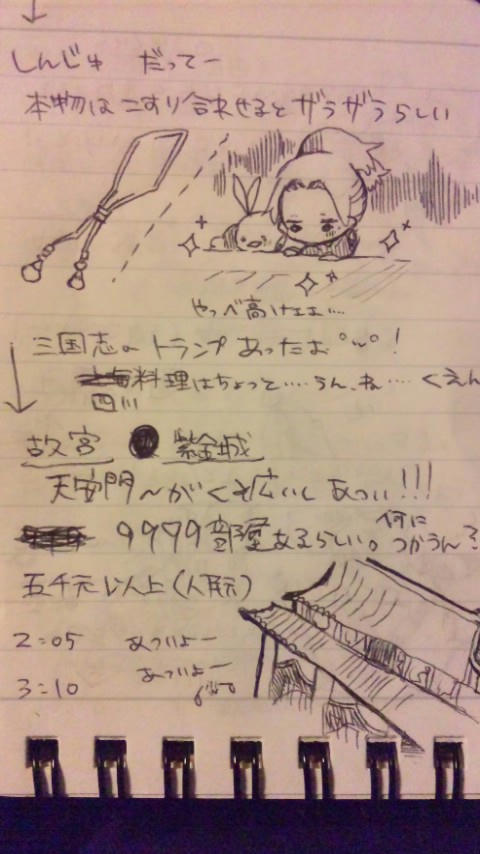 しんじゅ だってー
本物はこすり合わせるとザラザラらしい
やっべ高けェぉ…
三国志のトランプあったお°w°!
料理はちょっと……うん、ね…… くえん
四川
故宮 紫金城
天安門〜がくそ広いしあつい!!!
9979部屋あるらしい。何に
つかうん?
五千元以上(人民元)
2:05 あついよー
3:10 あついよー